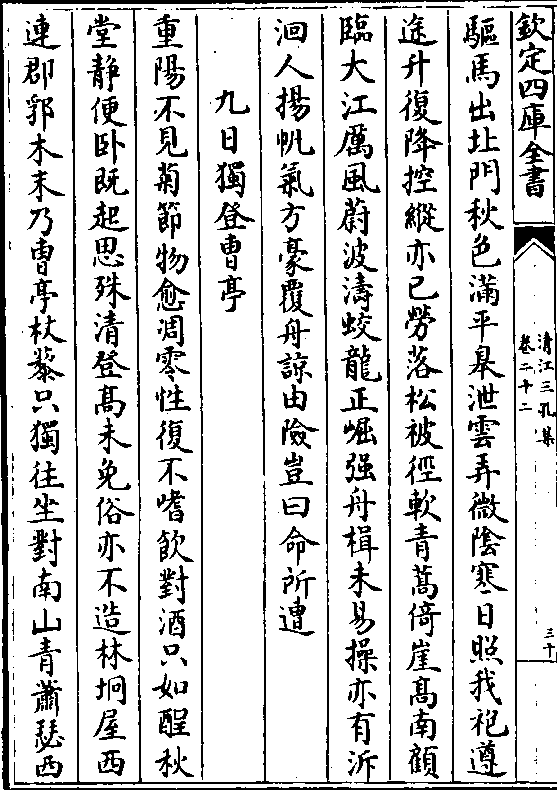 欽定四庫全書
清江三孔集
卷二十二
三十
驅馬出北門秋色滿平皋泄雲弄微隂寒日照我袍遵
途升復降控縱亦已勞落松被徑軟青蒿倚崖髙南顧
臨大江厲風蔚波濤蛟龍正崛强舟楫未易操亦有泝
洄人揚帆氣方豪覆舟諒由險豈曰命所遭
九日獨登曹亭
重陽不見菊節物愈凋零性復不嗜飲對酒只如酲秋
堂静便卧既起思殊清登髙未免俗亦不造林坰屋西
連郡郭木末乃曹亭杖藜只獨往坐對南山青蕭瑟西